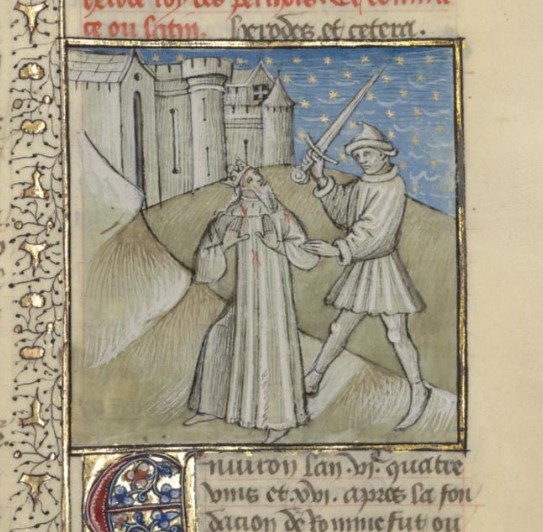 roy des Et comme
ce ou latin. herodes et cetera.
Enuiron lan .vjc. quatre
vins et .xvj. apres la fon
dacion de romme fut ou